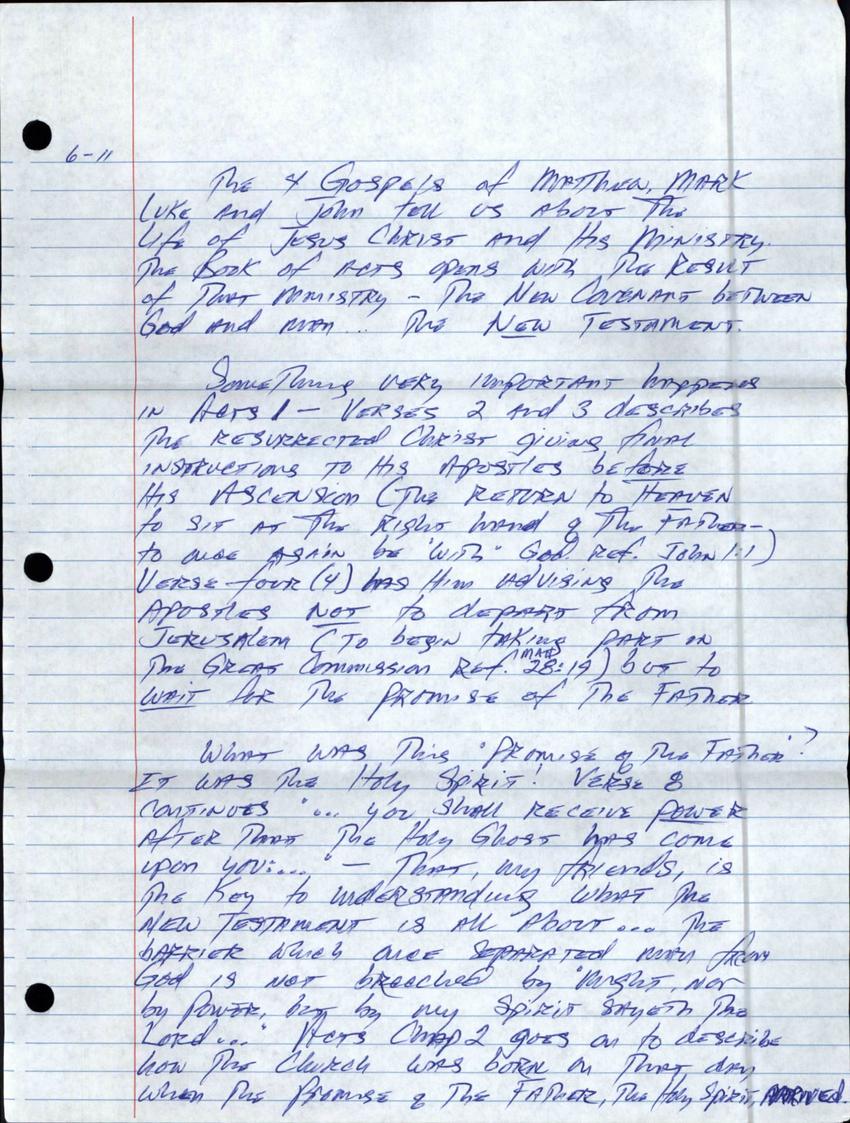 6-11
The 4 Gospels of Matthew, Mark
Luke and John tell us about the
life of Jesus Christ and His Ministry.
The Book of Acts opens with the Result
of that Ministry - The New Covenant between
God and man... The New Testament.
Something very important happens
in Acts 1 - Verses 2 and 3 describes
the resurrected Christ giving final
instructions to His Apostles before
His Ascension (The return to Heaven
to sit at the right hand of the Father-
to once again be "with" God Ref. John 1:1)
Verse four (4) has Him advising the
Apostles NOT to depart from
Jerusalem (To begin taking part in
the Great Commission Ref. Matt 28:19) but to
WAIT for the Promise of the Father
What was this "Promise of the Father"?
It was the Holy Spirit! Verse 8
continues "... you shall receive power
after that the Holy Ghost has come
upon you:..." - That, my friends, is
the Key to understanding what the
New Testament is all about... The
barrier which once separated man from
God is not breached by "might, nor
by power, but by my Spirit sayeth the
Lord..." Acts Chap 2 goes on to describe
how the Church was born on that day
when the Promise of the Father, the Holy Spirit, arrived.